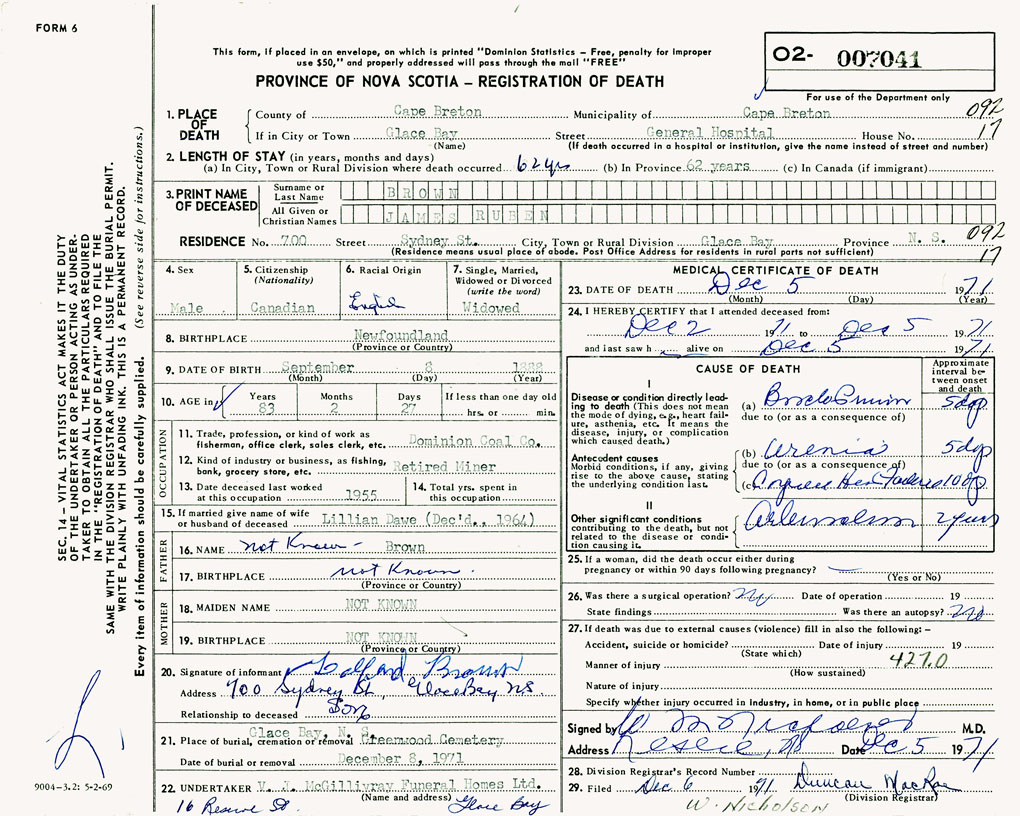 FORM 6
This form, if placed in an envelope, on which is printed "Dominion Statistics – Free, penalty for improper
use $50," and properly addressed will pass through the mail "FREE"
PROVINCE OF NOVA SCOTIA – REGISTRATION OF DEATH
02- 007041
For use of the Department only
092
17
1. PLACE OF DEATH
County of Cape Breton Municipality of Cape Breton
If in City or Town Glace Bay Street General Hospital House No.
(Name) (If death occurred in a hospital or institution, give the name instead of street and number)
2. LENGTH OF STAY (in years, months and days)
(a) In City, Town or Rural Division where death occurred 62 yrs (b) In Province 62 years (c) In Canada (if immigrant)
3. PRINT NAME OF DECEASED
Surname or Last Name BROWN
All Given or Christian Names JAMES RUBEN
RESIDENCE No. 700 Street Sydney St. City, Town or Rural Division Glace Bay Province N. S.
092
17
(Residence means usual place of abode. Post Office Address for residents in rural parts not sufficient)
4. Sex
Male
5. Citizenship
(Nationality)
Canadian
6. Racial Origin
English
7. Single, Married,
Widowed or Divorced
(write the word)
Widowed
8. BIRTHPLACE Newfoundland
(Province or Country)
9. DATE OF BIRTH September 8 1888
(Month) (Day) (Year)
10. AGE in
Years Months Days If less than one day old
83 2 27 hrs. or min.
OCCUPATION
11. Trade, profession, or kind of work as
fisherman, office clerk, sales clerk, etc. Dominion Coal Co.
12. Kind of industry or business, as fishing,
bank, grocery store, etc. Retired Miner
13. Date deceased last worked
at this occupation 1955
14. Total yrs. spent in
this occupation
15. If married give name of wife
or husband of deceased Lillian Dawe (Dec'd., 1964)
FATHER
16. NAME not Known - Brown
17. BIRTHPLACE not Known.
(Province or Country)
MOTHER
18. MAIDEN NAME NOT KNOWN
19. BIRTHPLACE NOT KNOWN
(Province or Country)
20. Signature of informant Brown
Address 700 Sydney St, Glace Bay NS.
Relationship to deceased Son
21. Place of burial, cremation or removal Glace Bay, N. S. Greenwood Cemetery
Date of burial or removal December 8, 1971
22. UNDERTAKER V. J. McGillivray Funeral Homes Ltd.
(Name and address)
16 Reserve St. Glace Bay
MEDICAL CERTIFICATE OF DEATH
23. DATE OF DEATH Dec 5 1971
(Month) (Day) (Year)
24. I HEREBY CERTIFY that I attended deceased from:
Dec 2 1971 to Dec 5 1971
and last saw h alive on Dec 5 1971
CAUSE OF DEATH
Approximate interval between onset and death
I
Disease or condition directly leading to death (This does not
mean the mode of dying, e.g., heart failure, asthenia, etc. It means the
disease, injury, or complication
which caused death.)
(a)
due to (or as a consequence of)
Antecedent causes
Morbid conditions, if any, giving
rise to the above cause, stating
the underlying condition last.
(b) Uremia
due to (or as a consequence of)
(c)
II
Other significant conditions
contributing to the death, but not
related to the disease or condition causing it.
2 years
25. If a woman, did the death occur either during
pregnancy or within 90 days following pregnancy?
(Yes or No)
26. Was there a surgical operation? Date of operation 19
State findings Was there an autopsy? No
27. If death was due to external causes (violence) fill in also the following: –
Accident, suicide or homicide? Date of injury 19
(State which)
427.0
Manner of injury
(How sustained)
Nature of injury
Specify whether injury occurred in industry, in home, or in public place
Signed by M.D.
Address Date Dec 5 1971
28. Division Registrar's Record Number
29. Filed Dec 6 1971 Duncan MacRae
(Division Registrar)
W. NICHOLSON
SEC. 14 – VITAL STATISTICS ACT MAKES IT THE DUTY
OF THE UNDERTAKER OR PERSON ACTING AS UNDERTAKER TO OBTAIN ALL THE PARTICULARS REQUIRED
IN THE "REGISTRATION OF DEATH" AND TO FILE THE
SAME WITH THE DIVISION REGISTRAR WHO SHALL ISSUE THE BURIAL PERMIT.
WRITE PLAINLY WITH UNFADING INK. THIS IS A PERMANENT RECORD.
Every item of information should be carefully supplied. (See reverse side for instructions.)
9004-3.2: 5-2-69